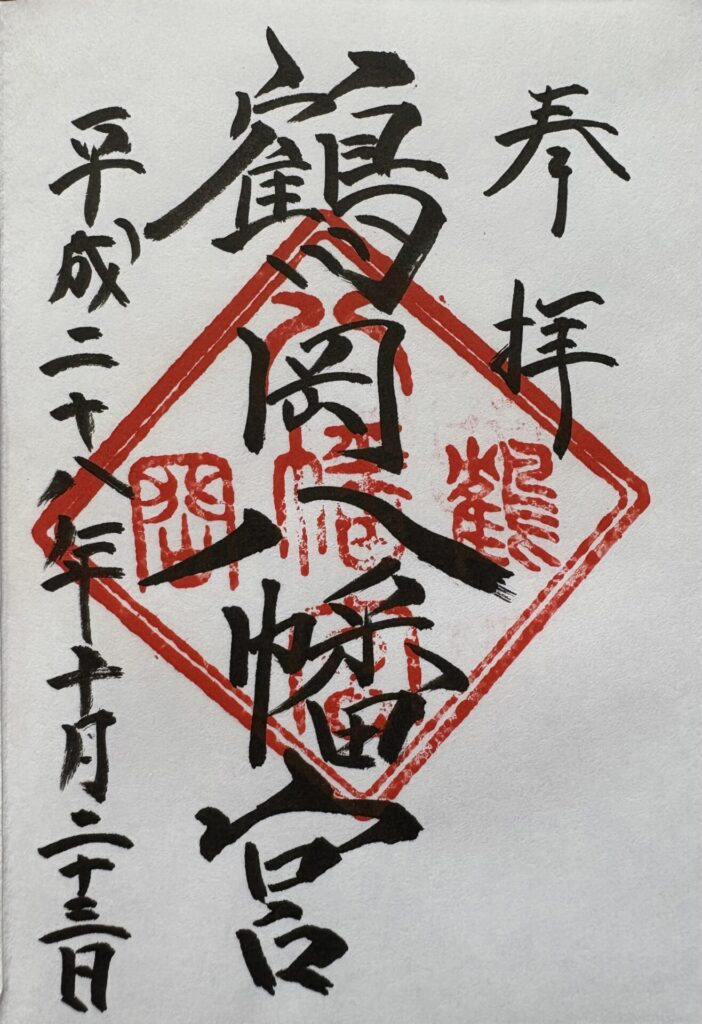 奉拝
鶴岡八幡宮
鶴
八幡宮
岡
平成二十八年十月二十三日